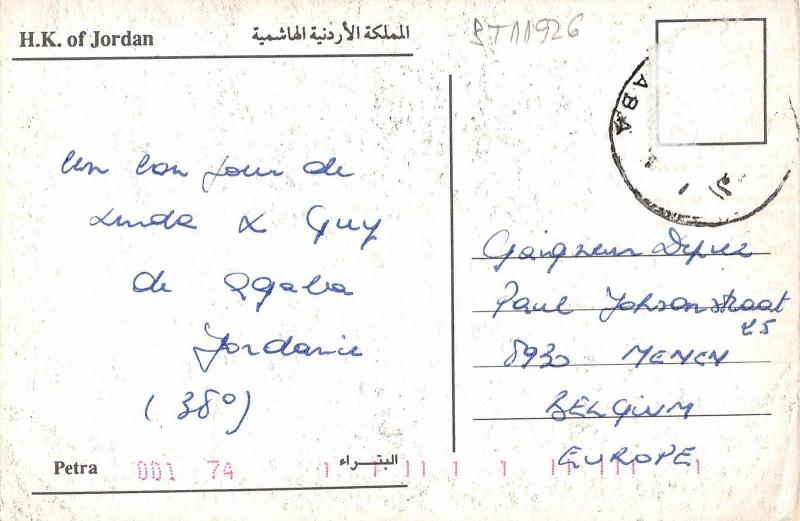 H.K. of Jordan
المملكة الأردنية الهاشمية
BT11926
ABA
un bon jour de
Linda & Guy
de Aqaba
Jordanie
(38°)
Depree
Paul
25
8930 MENEN
BELGIUM
EUROPE
Petra
001 74
البتراء